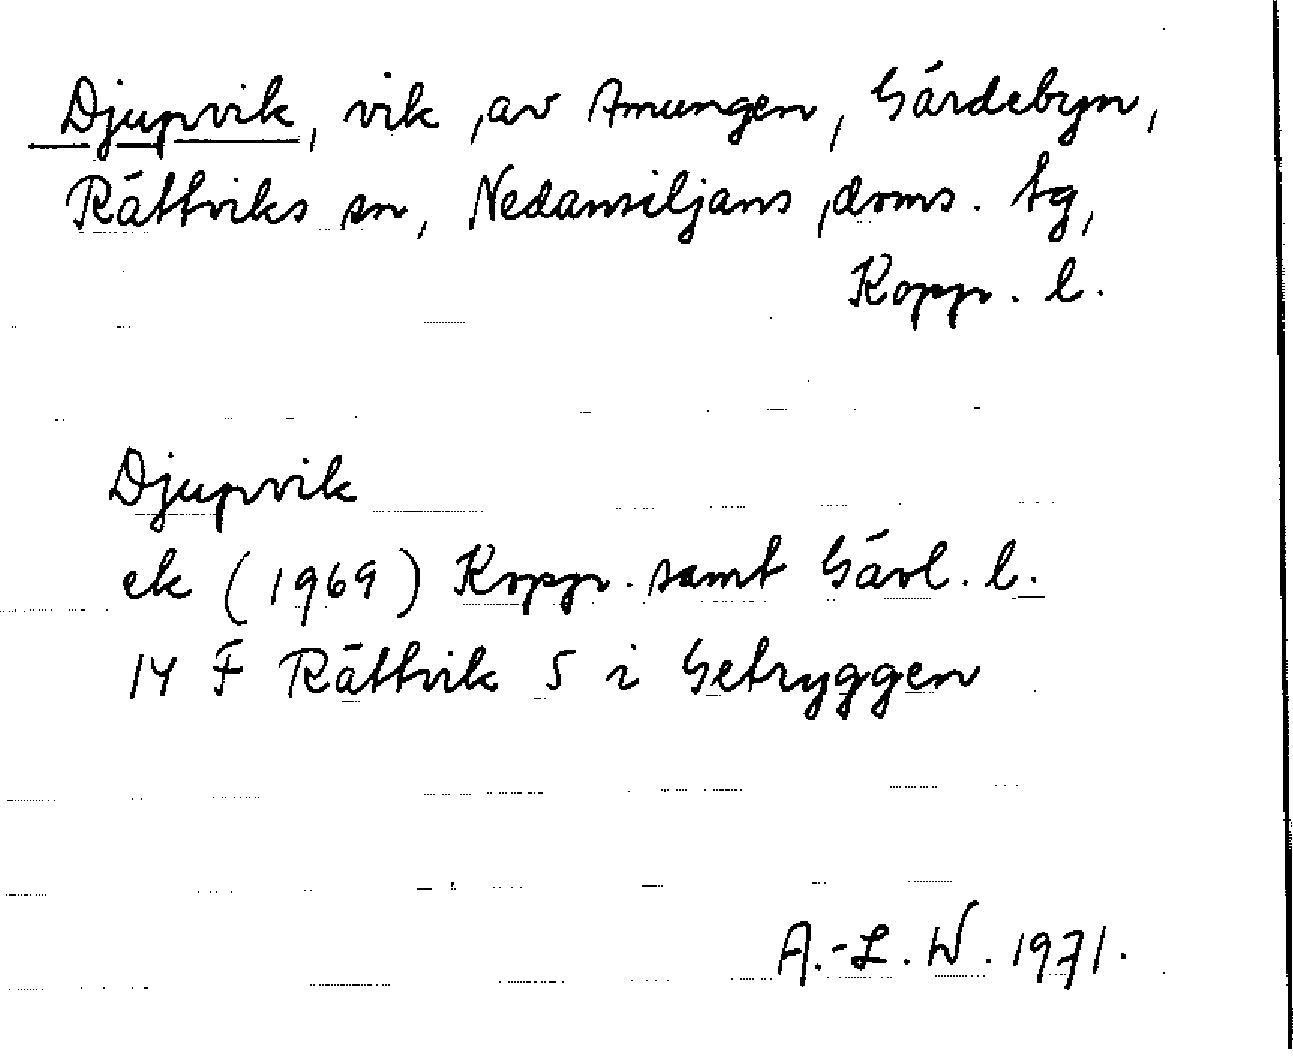 Djupvik, vik av Amungen, Gärdebyn,
Rättviks sn, Nedansiljans doms. tg,
Kopp. l.
Djupvik
ek (1969) Kopp. samt Gävl. l.
14 F Rättvik 5 i Getryggen
A.-L. W. 1971.